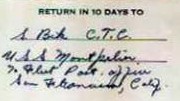 RETURN IN 10 DAYS TO
S Bik C.T.C.
U.S.S Montpelier
℅ Fleet Post. office
San Francisco, Calif.